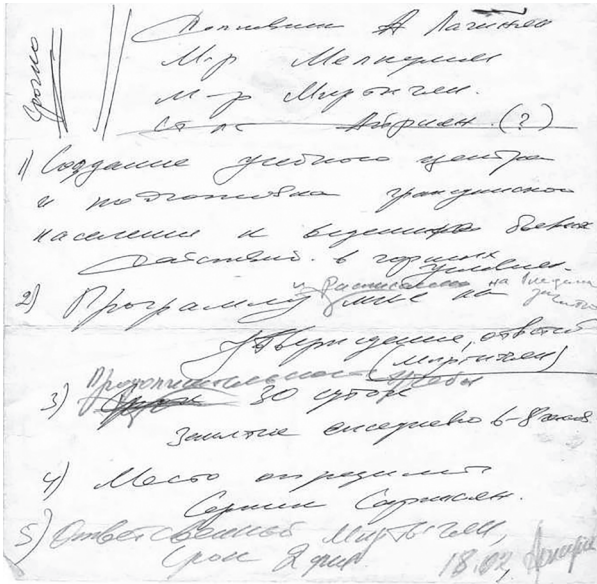 Срочно
А Лачинян
М-р Мелкумян
М-р Миртычян.
ст л-т Айриян. (?)
1) Создание учебного центра
и подготовка гражданского
населения к ведению боевых
действий в горных условиях.
2) Программу и Расписание на неделю занятий мне на
Утверждение, ответств.
(Миртычян)
3) Продолжительность учебы
30 суток
Занятие ежедневно 6-8 часов
4) Место определит
Сержик Саркисян.
5) Ответственный Миртычян,
Срок 2 дня 18.02,